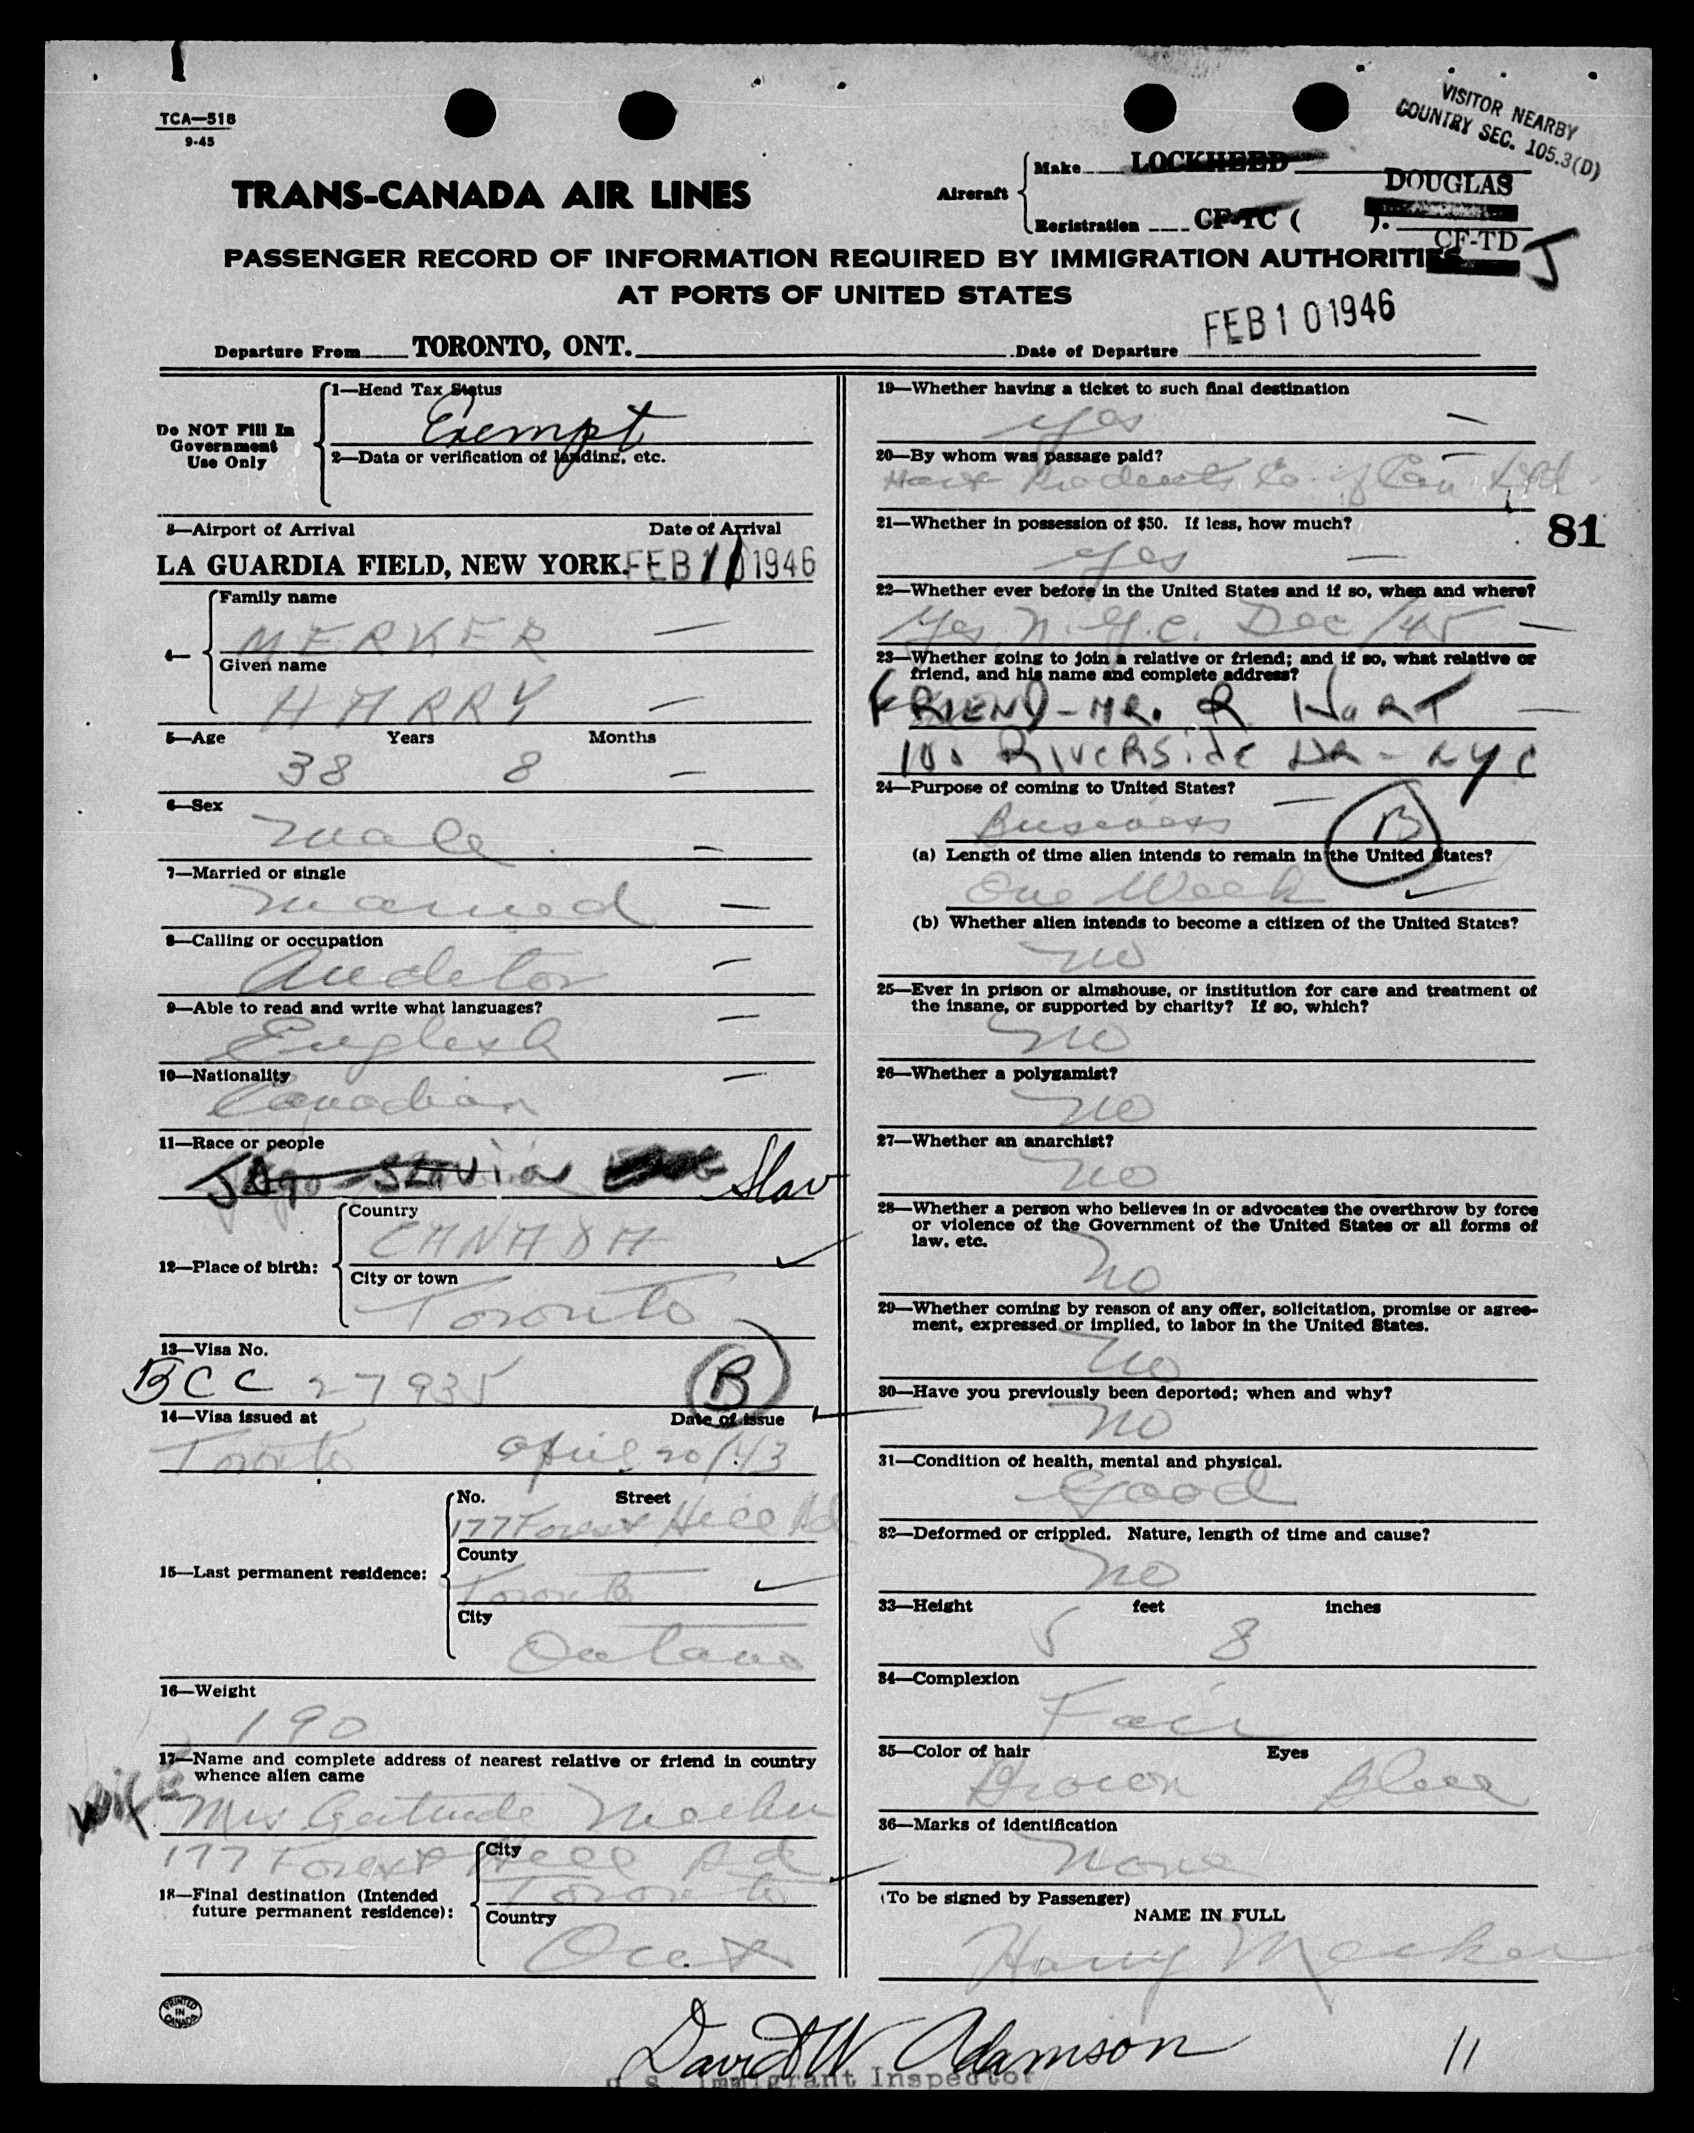 TCA—518
9-45
VISITOR NEARBY
COUNTRY SEC. 105.3(D)
TRANS-CANADA AIR LINES
Aircraft
Make LOCKHEED
DOUGLAS
Registration CF-TC ( ).
CF-TD J
PASSENGER RECORD OF INFORMATION REQUIRED BY IMMIGRATION AUTHORITIES
AT PORTS OF UNITED STATES
Departure From TORONTO, ONT. Date of Departure FEB 10 1946
Do NOT Fill In
Government
Use Only
1—Head Tax Status
Exempt
2—Data or verification of landing, etc.
3—Airport of Arrival Date of Arrival
LA GUARDIA FIELD, NEW YORK. FEB 11 1946
4—
Family name
MERKER
Given name
HARRY
5—Age Years Months
38 8
6—Sex
Male
7—Married or single
Married
8—Calling or occupation
Auditor
9—Able to read and write what languages?
English
10—Nationality
Canadian
11—Race or people
Slav
12—Place of birth:
Country
CANADA
City or town
Toronto
13—Visa No.
BCC 27935 B
14—Visa issued at Date of issue
Toronto April 20/43
15—Last permanent residence:
No. Street
177 Forest Hill Rd
County
Toronto
City
Ontario
16—Weight
190
17—Name and complete address of nearest relative or friend in country
whence alien came
wife
Mrs Gertrude Merker
177 Forest Hill Rd
18—Final destination (Intended
future permanent residence):
City
Toronto
Country
Ont
19—Whether having a ticket to such final destination
yes
20—By whom was passage paid?
Hart Products Co. of Can Ltd.
21—Whether in possession of $50. If less, how much?
81
yes
22—Whether ever before in the United States and if so, when and where?
Yes, N.Y.C. Dec/45
23—Whether going to join a relative or friend; and if so, what relative or
friend, and his name and complete address?
FRIEND - MR. R HART
100 Riverside DR - NYC
24—Purpose of coming to United States?
Business B
(a) Length of time alien intends to remain in the United States?
One Week
(b) Whether alien intends to become a citizen of the United States?
no
25—Ever in prison or almshouse, or institution for care and treatment of
the insane, or supported by charity? If so, which?
no
26—Whether a polygamist?
no
27—Whether an anarchist?
no
28—Whether a person who believes in or advocates the overthrow by force
or violence of the Government of the United States or all forms of
law, etc.
no
29—Whether coming by reason of any offer, solicitation, promise or agree-
ment, expressed or implied, to labor in the United States.
no
30—Have you previously been deported; when and why?
no
31—Condition of health, mental and physical.
Good
32—Deformed or crippled. Nature, length of time and cause?
no
33—Height feet inches
5 8
34—Complexion
Fair
35—Color of hair Eyes
Brown Blue
36—Marks of identification
None
(To be signed by Passenger)
NAME IN FULL
Harry Merker
PRINTED
IN
CANADA
David W Adamson 11
U.S. Immigrant Inspector